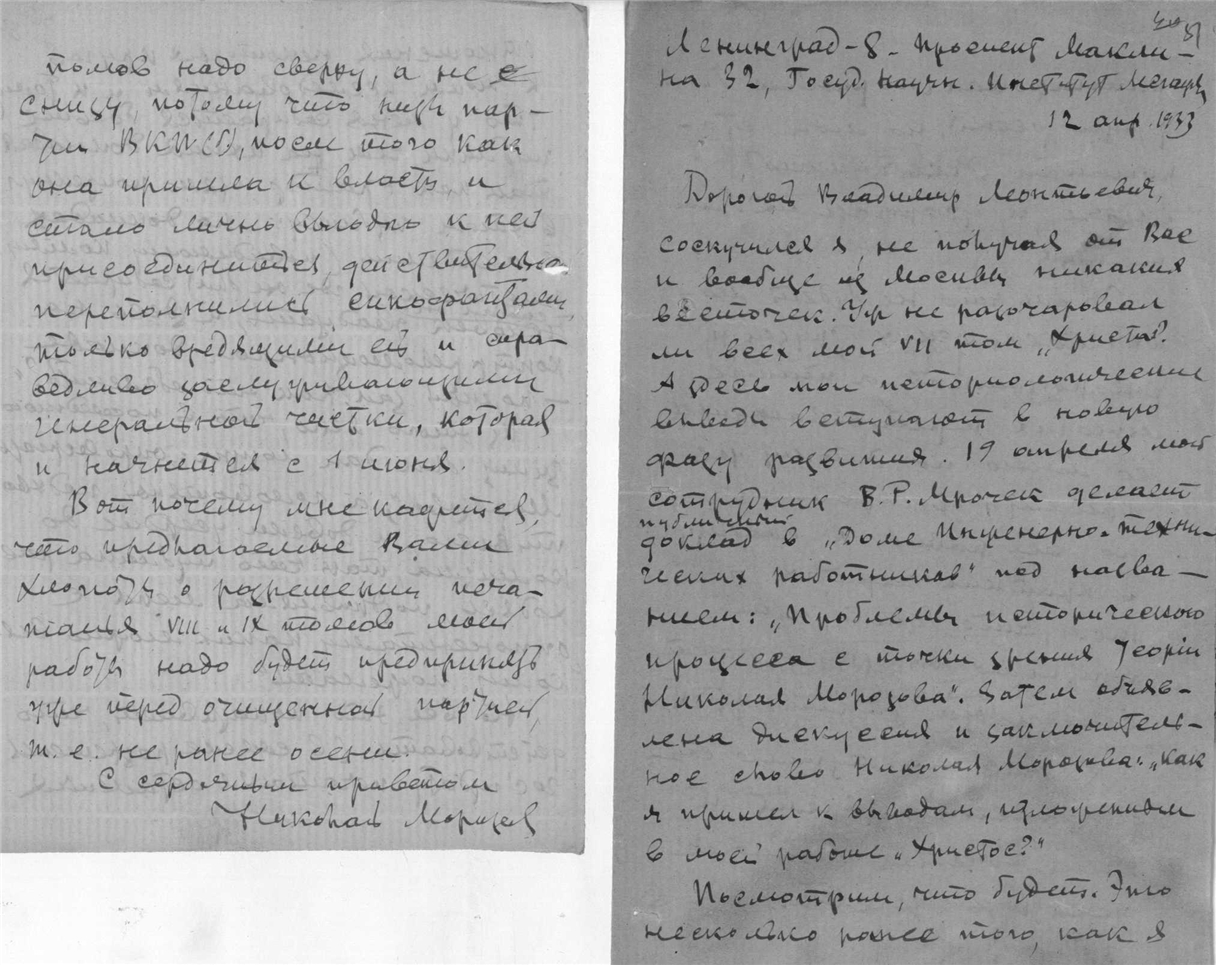 Ленинград-8. Проспект Макли-
на 32, Госуд. Научн. Институт
12 апр. 1933
Дорогой Владимир Леонтьевич,
соскучился я, не получая от Вас
и вообще из Москвы никаких
весточек. Уж не разочаровал
ли всех мой VII том „Христа?"
А здесь мои историологические
выводы вступают в новую
фазу развития. 19 апреля мой
сотрудник В.Р. Мрочек делает
публичный
доклад в „Доме Инженерно-техни-
ческих работников" под назва-
нием: „Проблемы исторического
процесса с точки зрения Теоріи
Николая Морозова". Затем объяв-
лена дискуссия и заключитель-
ное слово Николая Морозова: „как
я пришел к выводам, изложенным
в моей работе „Христос?"
Посмотрим, что будет. Это
несколько ранее того, как я
томов надо сверху, а не с
снизу, потому что низы пар-
тии ВКП(б), после того как
она пришла к власти и
стало лично выгодно к ней
присоединиться, действительно
переполнились сикофантами,
только вредящими ей и спра-
ведливо заслуживающими
генеральной чистки, которая
и начнется с 1 июня.
Вот почему мне кажется,
что предлагаемые Вами
хлопоты о разрешении печа-
танья VIII и IX томов моей
работы надо будет предпринять
уже перед очищенной партией,
т.е. не ранее осени.
С сердечным приветом
Николай Морозов